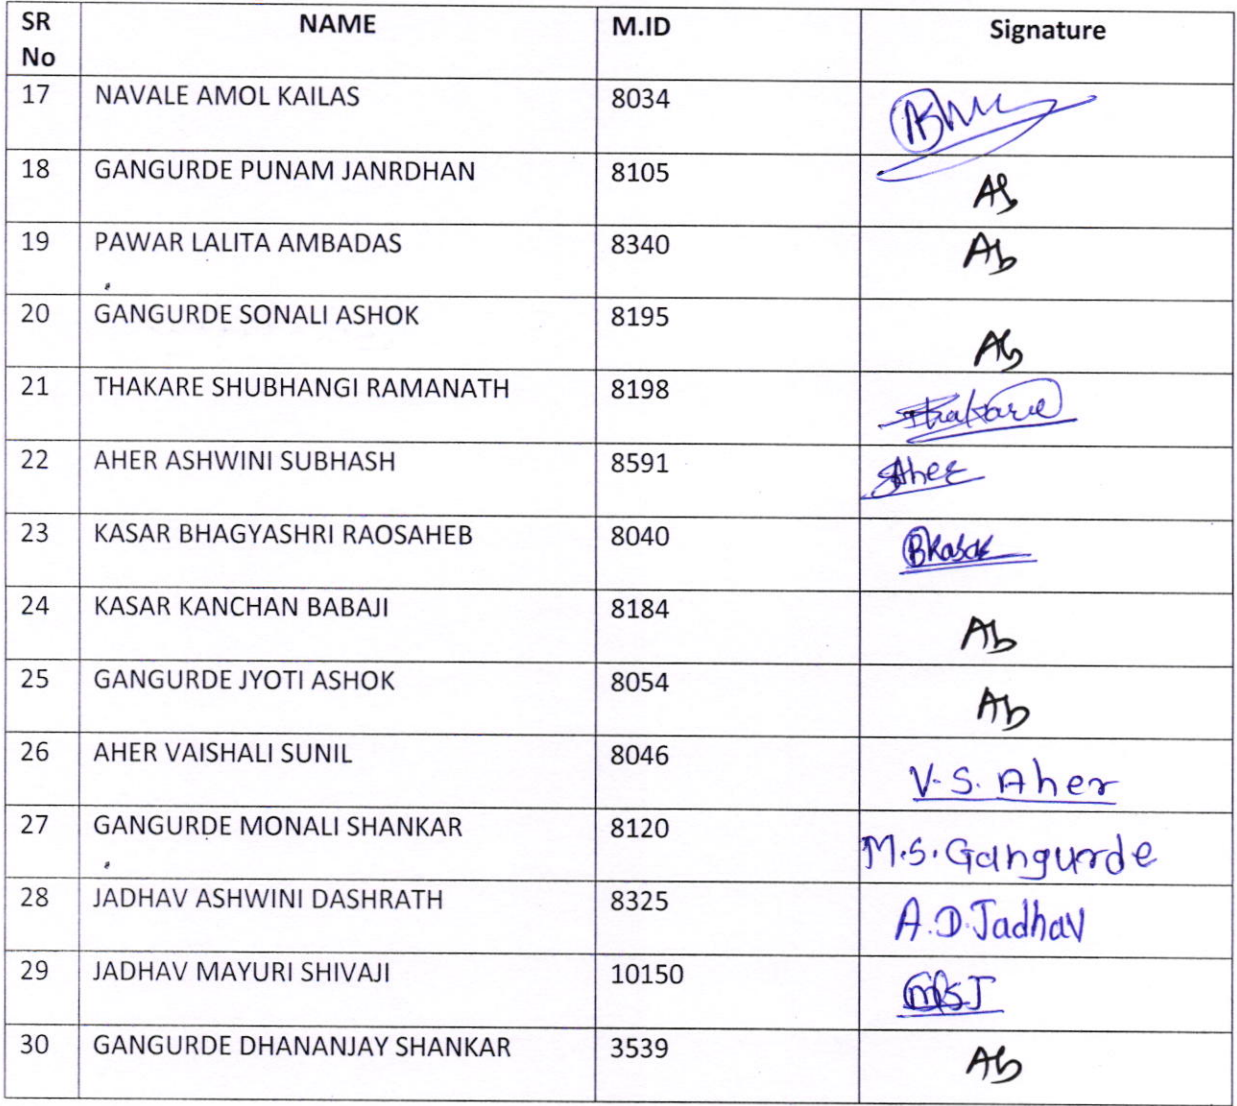 SR No NAME M.ID Signature
17 NAVALE AMOL KAILAS 8034
18 GANGURDE PUNAM JANRDHAN 8105 Ab
19 PAWAR LALITA AMBADAS 8340 Ab
20 GANGURDE SONALI ASHOK 8195 Ab
21 THAKARE SHUBHANGI RAMANATH 8198 Thakare
22 AHER ASHWINI SUBHASH 8591 Aher
23 KASAR BHAGYASHRI RAOSAHEB 8040 BKasar
24 KASAR KANCHAN BABAJI 8184 Ab
25 GANGURDE JYOTI ASHOK 8054 Ab
26 AHER VAISHALI SUNIL 8046 V.S. Aher
27 GANGURDE MONALI SHANKAR 8120 M.S. Gangurde
28 JADHAV ASHWINI DASHRATH 8325 A.D.Jadhav
29 JADHAV MAYURI SHIVAJI 10150 MSJ
30 GANGURDE DHANANJAY SHANKAR 3539 Ab